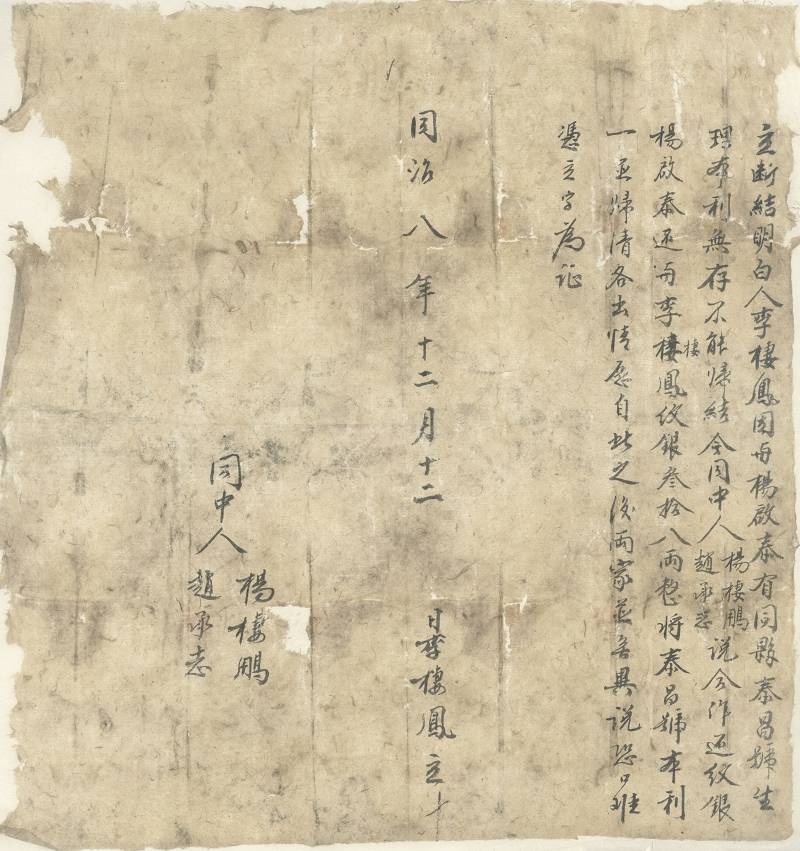 立断結明白人李棲鳳因与楊啟泰有同夥泰昌號生
理本利無存不能歸結今同中人楊棲鵬趙承志説合作还紋銀
楊啟泰还与李棲鳳紋銀叁拾八两整将泰昌號本利
棲
一並歸清各出情愿自此之後両家並無異説恐口难
憑立字為証
同治八年十二月十二日李棲鳳立十
同中人
楊棲鵬
趙承志